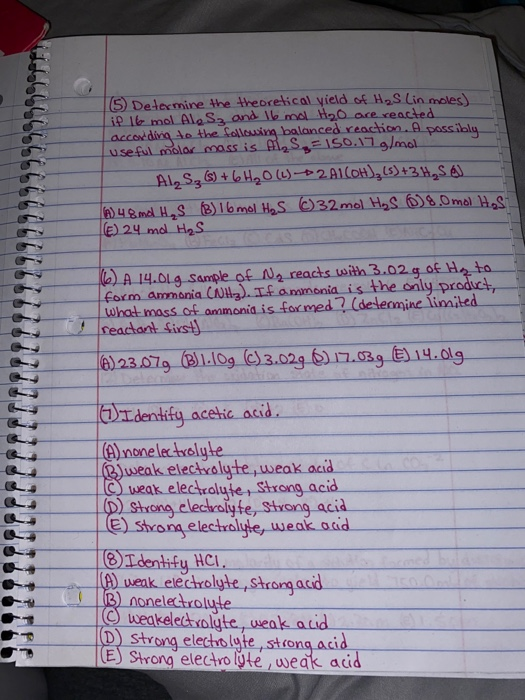 (5) Determine the theoretical yield of H₂S (in moles)
if 16 mol Al₂S₃ and 16 mol H₂O are reacted
according to the following balanced reaction. A possibly
useful molar mass is Al₂S₃ = 150.17 g/mol
Al₂S₃(s) + 6H₂O(L) → 2Al(OH)₃(s) + 3H₂S(g)
(A) 48 mol H₂S (B) 16 mol H₂S (C) 32 mol H₂S (D) 8.0 mol H₂S
(E) 24 mol H₂S
(6) A 14.01g sample of N₂ reacts with 3.02g of H₂ to
form ammonia (NH₃). If ammonia is the only product,
what mass of ammonia is formed? (determine limited
reactant first)
(A) 23.07g (B) 1.10g (C) 3.02g (D) 17.03g (E) 14.01g
(7) Identify acetic acid.
(A) nonelectrolyte
(B) weak electrolyte, weak acid
(C) weak electrolyte, strong acid
(D) strong electrolyte, strong acid
(E) strong electrolyte, weak acid
(8) Identify HCl.
(A) weak electrolyte, strong acid
(B) nonelectrolyte
(C) weak electrolyte, weak acid
(D) strong electrolyte, strong acid
(E) Strong electrolyte, weak acid